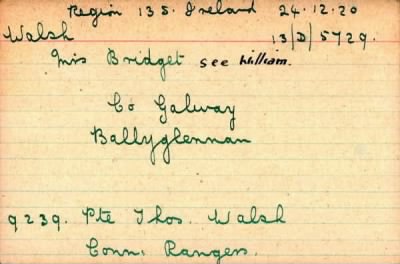 Region 13 S. Ireland 24.12.20
Walsh 13/D/5729.
Mrs Bridget see William.
Co Galway
Ballyglennan
9239. Pte Thos. Walsh
Conn. Rangers.